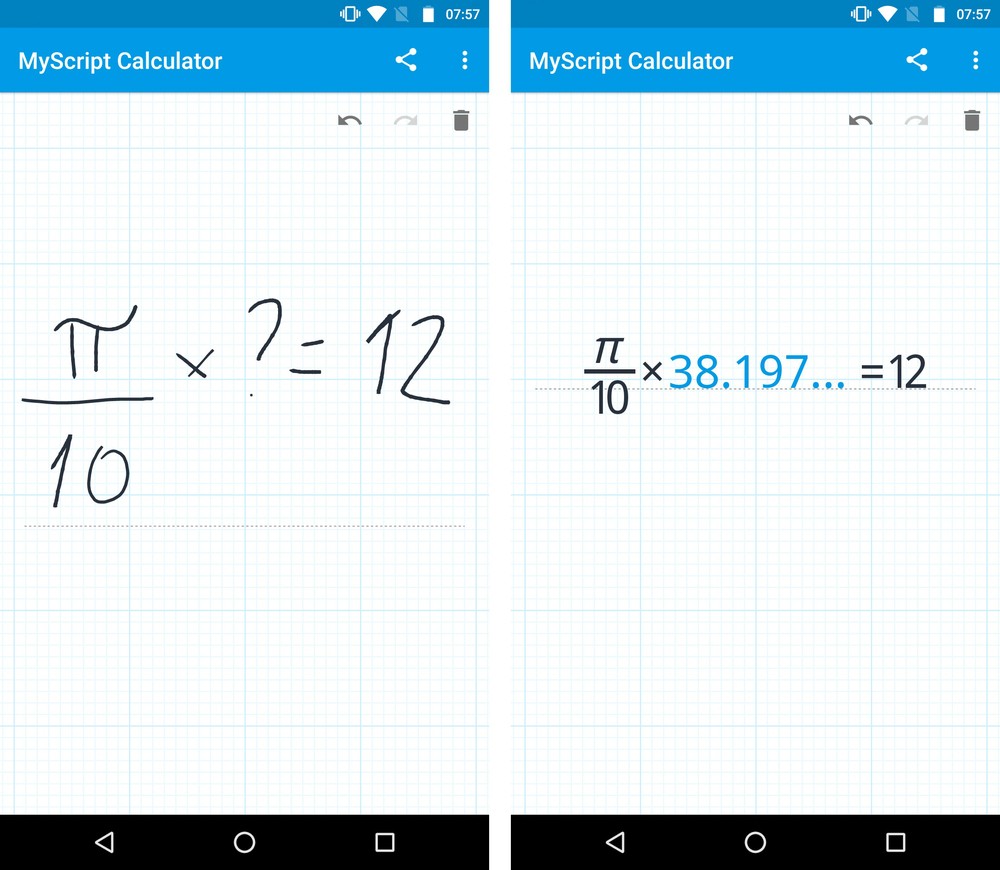 07:57
MyScript Calculator
π
× ? = 12
10
07:57
MyScript Calculator
π
×38.197... =12
10